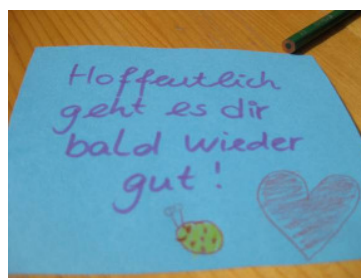 Hoffentlich
geht es dir
bald wieder
gut!